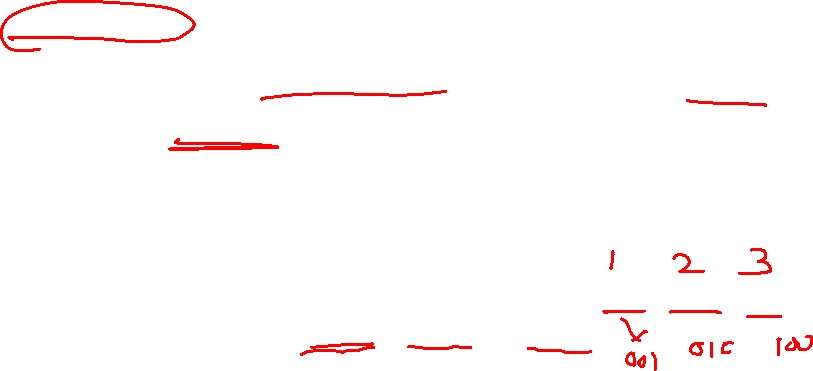 1 2 3
001 010 100